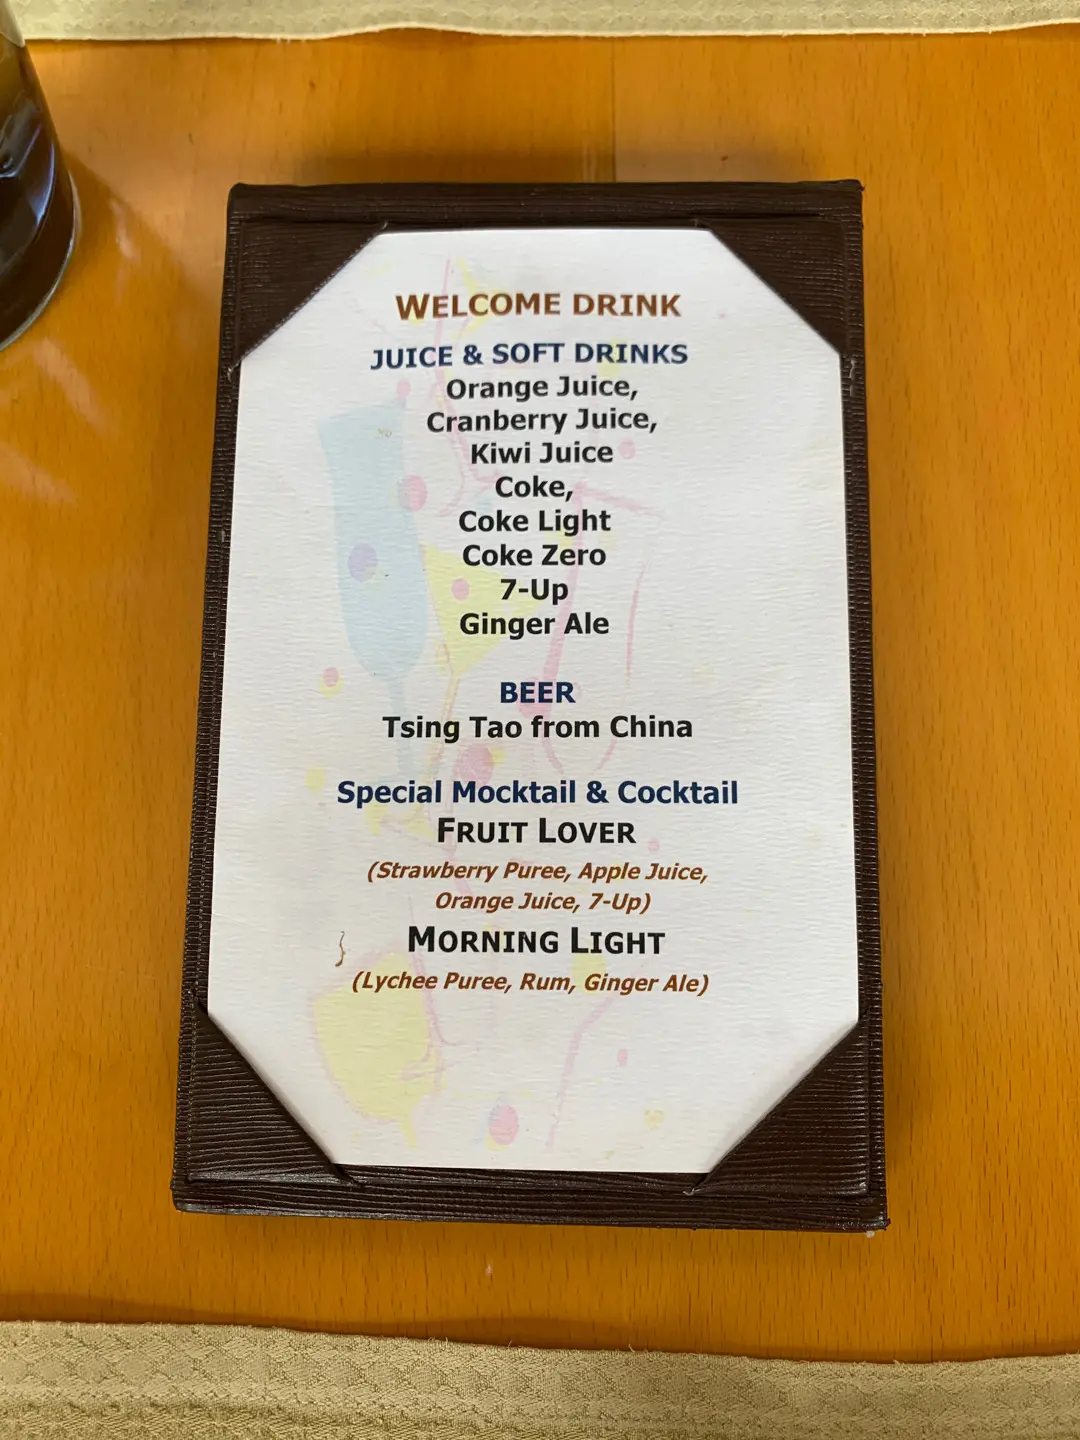 WELCOME DRINK
JUICE & SOFT DRINKS
Orange Juice,
Cranberry Juice,
Kiwi Juice
Coke,
Coke Light
Coke Zero
7-Up
Ginger Ale
BEER
Tsing Tao from China
Special Mocktail & Cocktail
FRUIT LOVER
(Strawberry Puree, Apple Juice,
Orange Juice, 7-Up)
MORNING LIGHT
(Lychee Puree, Rum, Ginger Ale)